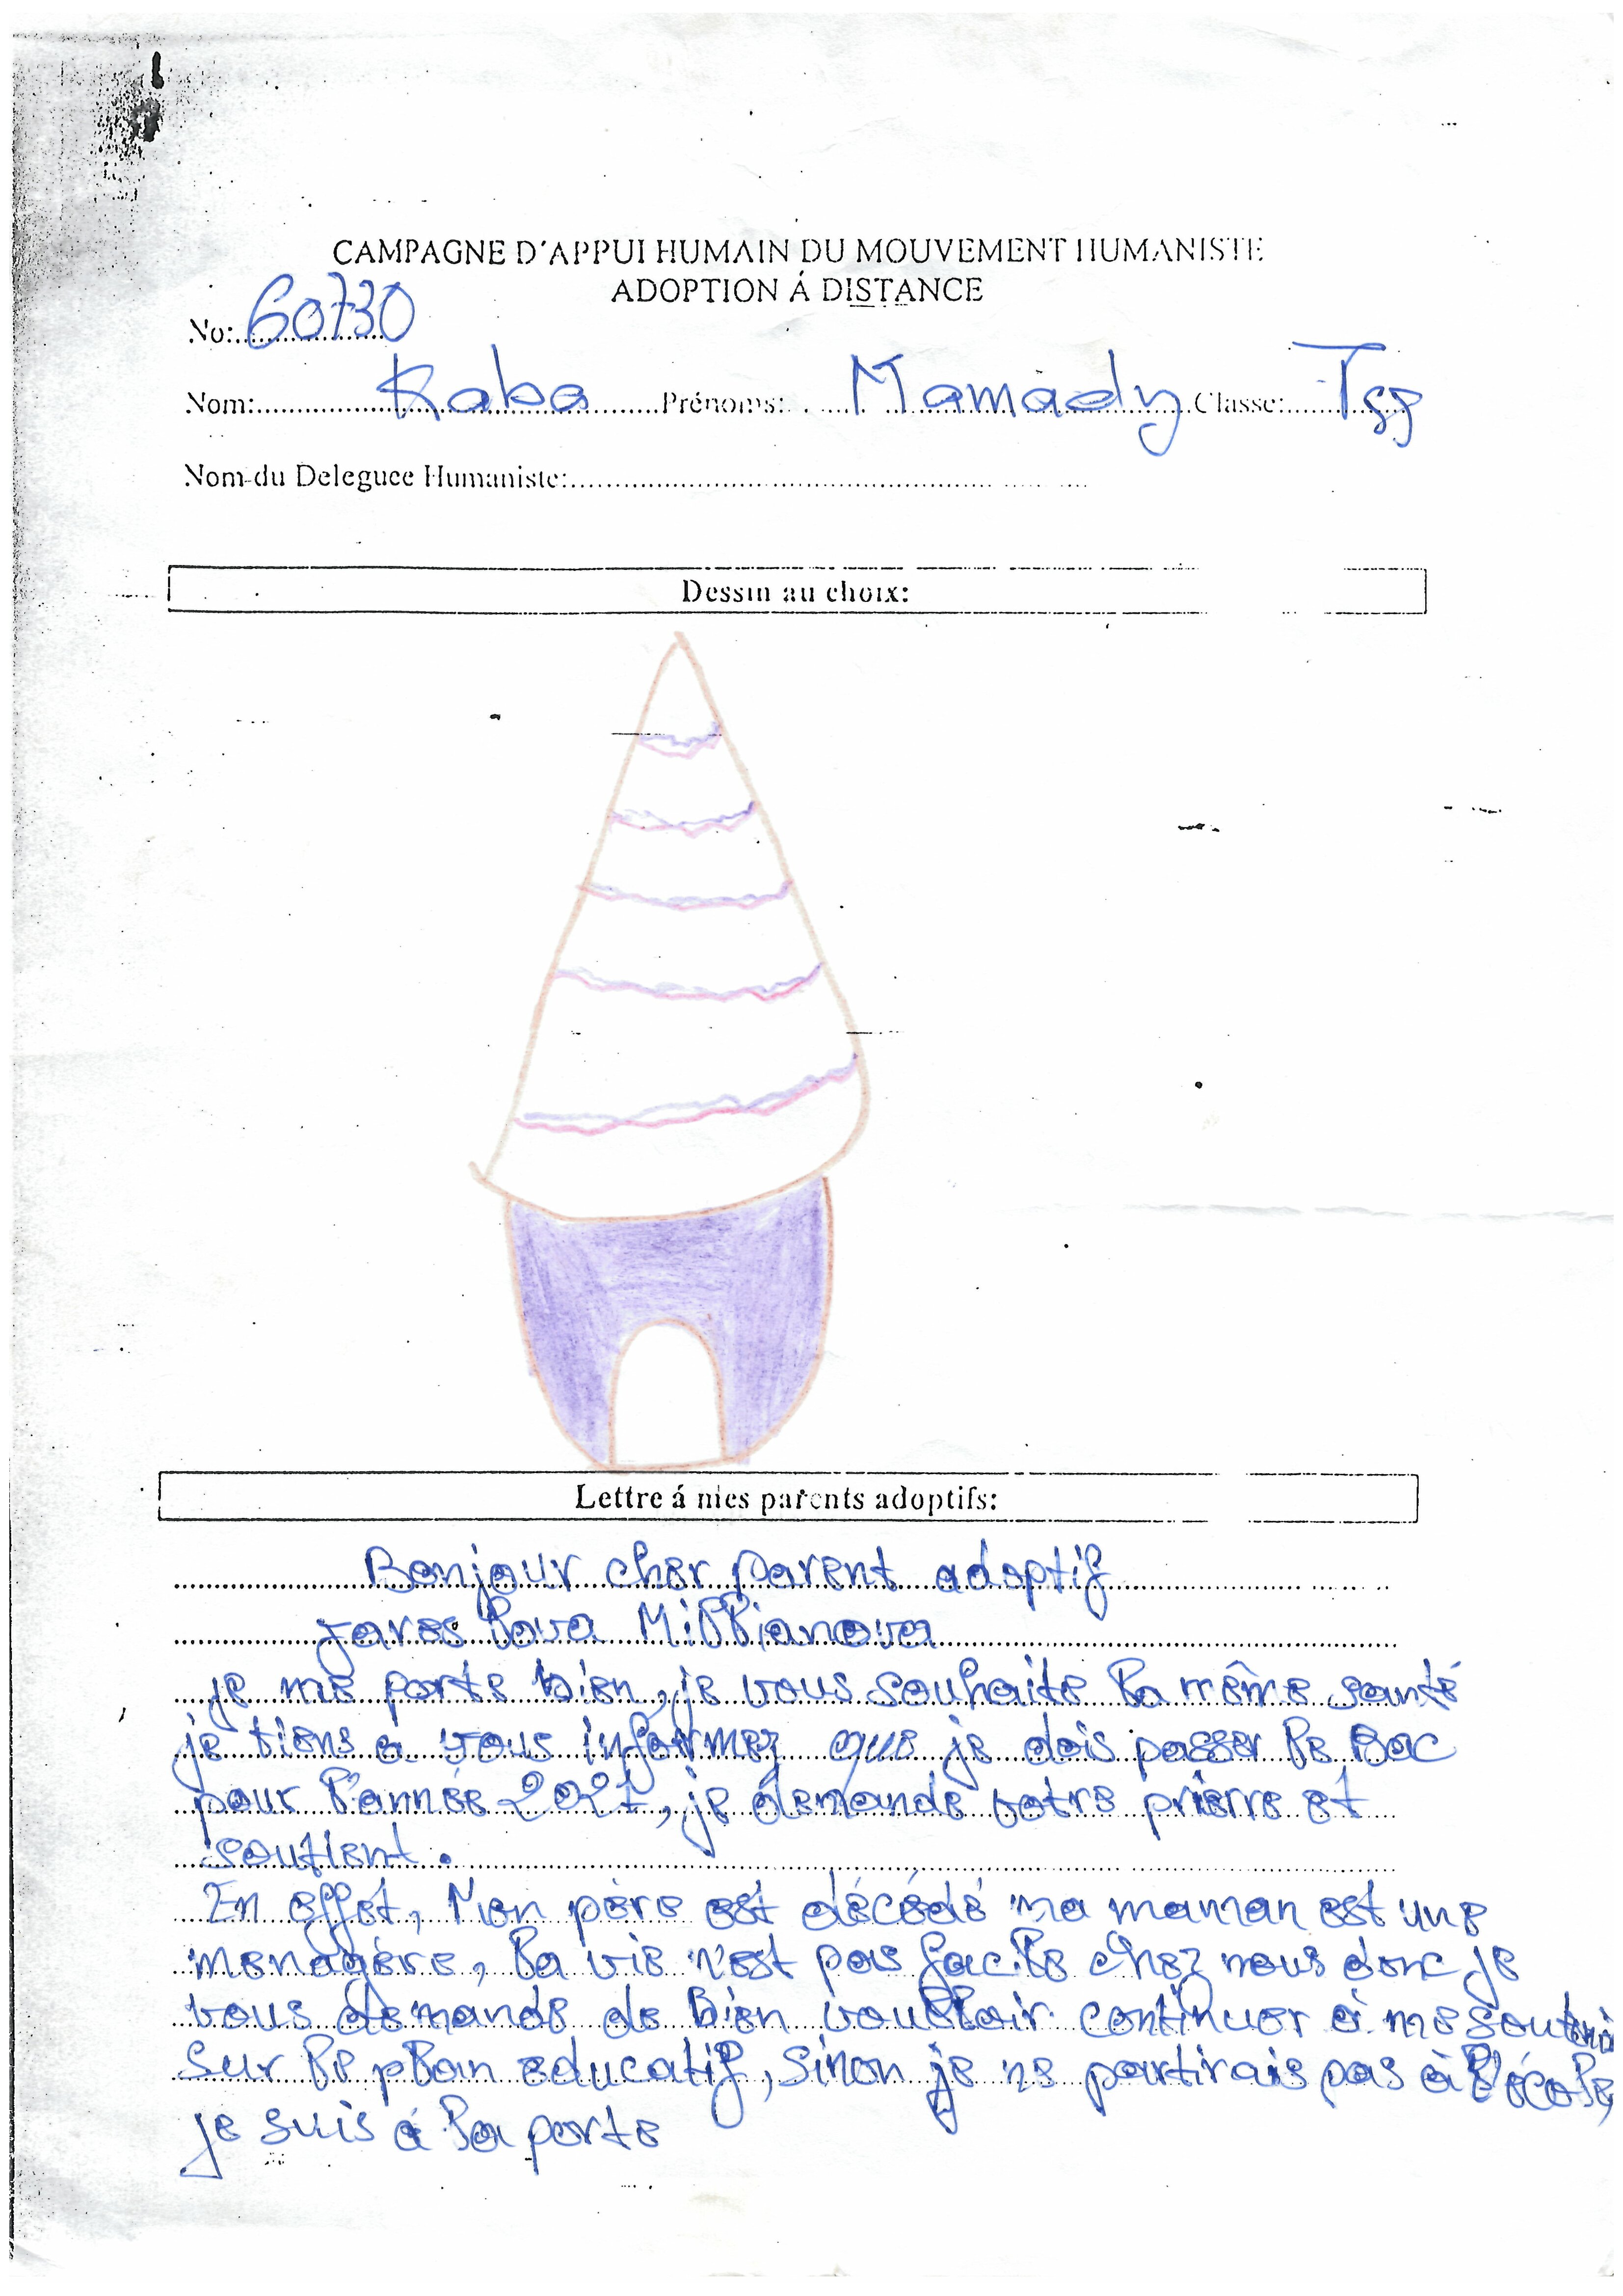 CAMPAGNE D'APPUI HUMAIN DU MOUVEMENT HUMANISTE
ADOPTION Á DISTANCE
No: 60730
Nom: Kaba Prénoms: Mamady Classe: Tss
Nom du Deleguee Humaniste:
Dessin au choix:
Lettre á mes parents adoptifs:
Bonjour cher parent adoptif
Jaros lova Millianova
je me porte bien, je vous souhaite la même santé
je tiens à vous informez que je dois passer le Bac
pour l'année 2021, je demande votre prierre et
soutient.
En effet, Mon père est décédé ma maman est une
menagère, la vie n'est pas facile chez nous donc je
vous demande de bien voulloir continuer à me soutenir
sur le plan educatif, sinon je ne partirais pas à l'école,
je suis à la porte